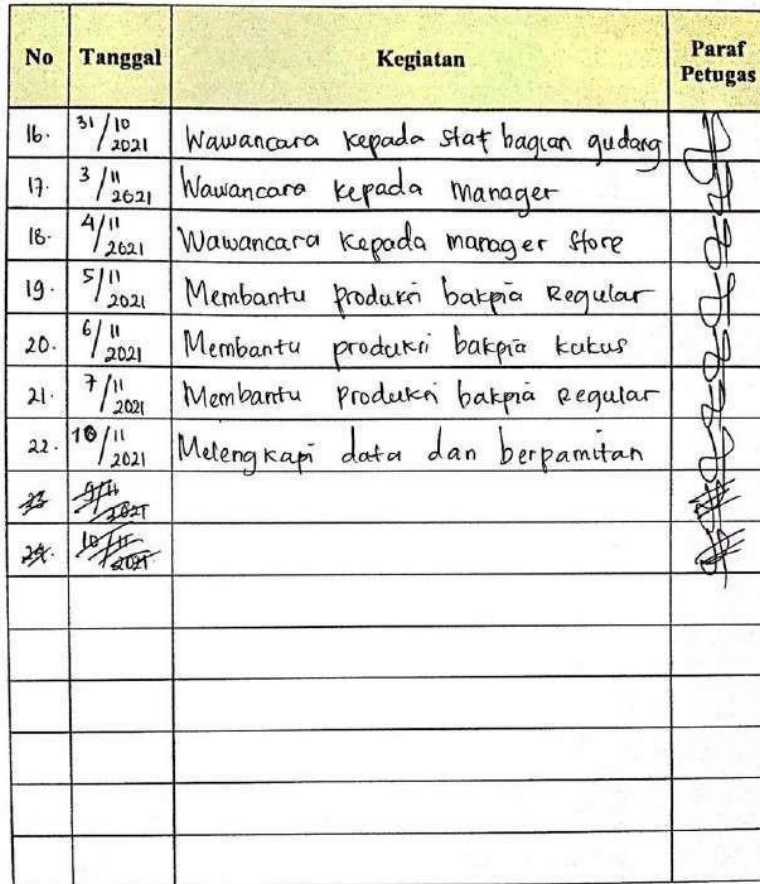 No Tanggal Kegiatan Paraf Petugas
16. 31/10 2021 Wawancara kepada staf bagian gudang
17. 3/11 2021 Wawancara kepada Manager
18. 4/11 2021 Wawancara kepada manager Store
19. 5/11 2021 Membantu produksi bakpia Regular
20. 6/11 2021 Membantu produksi bakpia kukus
21. 7/11 2021 Membantu produksi bakpia Regular
22. 10/11 2021 Melengkapi data dan berpamitan
23 9/11 2021
24. 10/11 2021